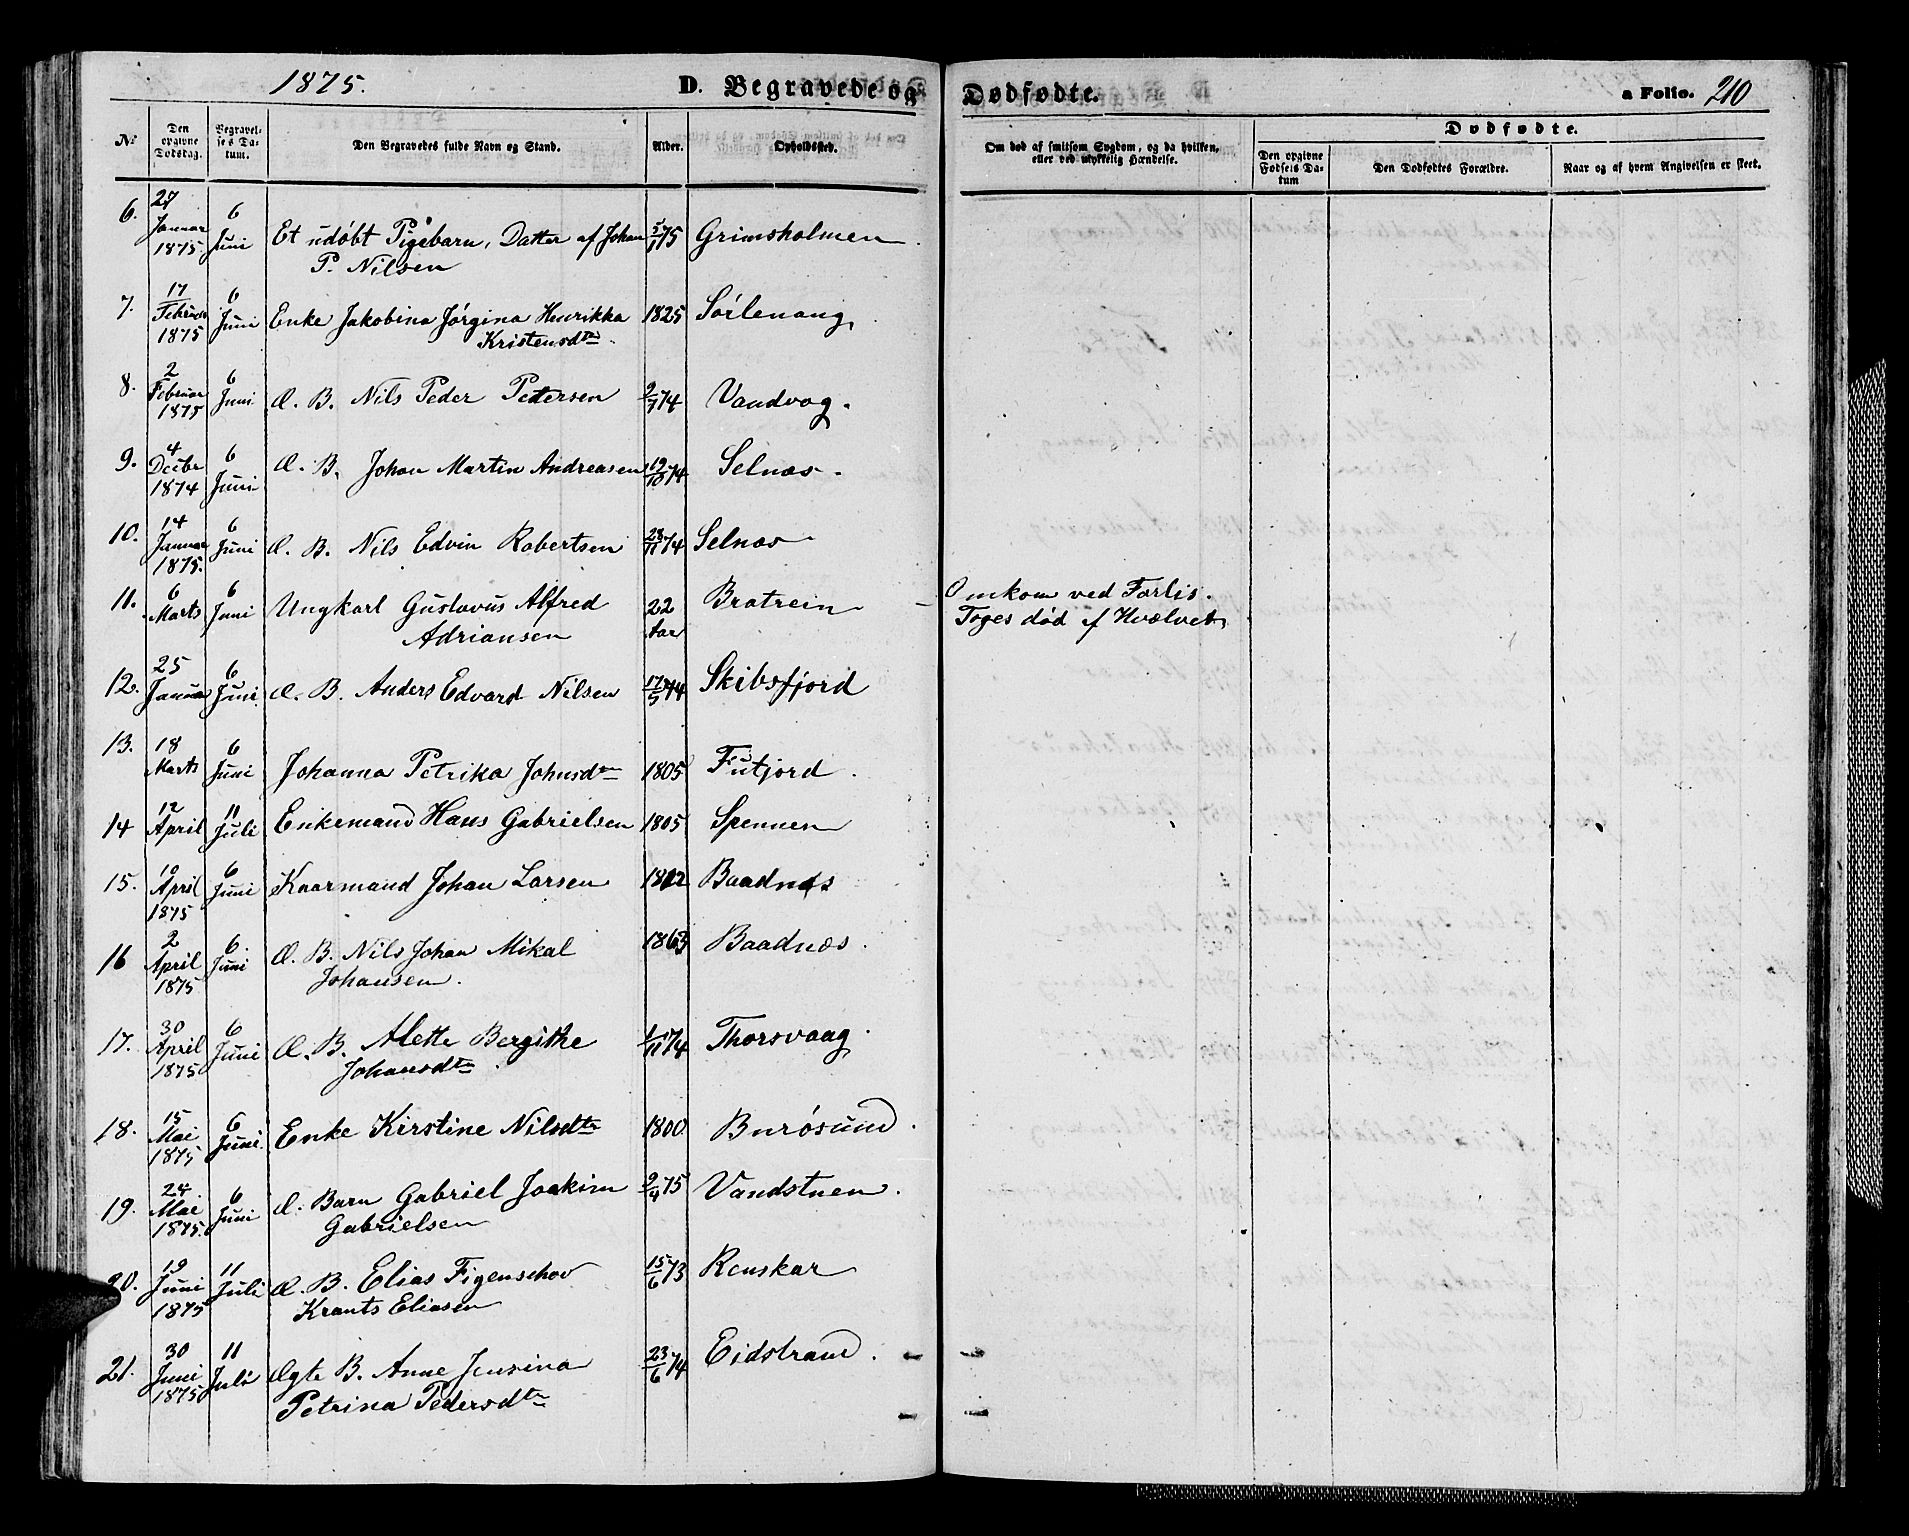 1875.
D. Begravede og Dødfødte.
a Folio. 210
No
Den opgivne Dødsdag.
Begravelses Datum.
Den Begravedes fulde Navn og Stand.
Alder.
Opholdssted.
Om død af smitsom Sygdom, og da hvilken, eller ved ulykkelig Hændelse.
Dødfødte.
Den opgivne Fødsels Datum
Den Dødfødtes Forældre.
Naar og af hvem Angivelsen er skeet.
6. 27 Januar 1875 6 Juni Et udøbt Pigebarn, Datter af Johan 5/1 75 Grimsholmen
P. Nilsen
7. 17 Februar 1875 6 Juni Enke Jakobina Jørgina Henrikka 1825 Sørlenang
Kristensdtr
8. 2 Februar 1875 6 Juni Æ. B. Nils Peder Petersen 2/7 74 Vandvag.
9. 4 Decbr 1874 6 Juni Æ. B. Johan Martin Andreasen 19/10 74 Selnæs.
10. 14 Januar 1875. 6 Juni Æ. B. Nils Edvin Robertsen 23/11 74 Selnæs
11. 6 Marts 6 Juni Ungkarl Gustavus Alfred 22 Aar Bratrein - Omkom ved Forlis.
Adriansen Toges død af Hvælvet
12. 25 Januar 6 Juni Æ. B. Anders Edvard Nilsen 17/5 74 Skibsfjord
13. 18 Marts 6 Juni Johanna Petrika Johnsdtr 1805 Futfjord.
14 12 April 11 Juli Enkemand Hans Gabrielsen 1805 Spennen
15. 10 April 1875 6 Juni Kaarmand Johan Larsen 1812 Baadnæs
16 2 April 1875 6 Juni Æ. B. Nils Johan Mikal 1863 Baadnæs.
Johansen.
17. 30 April 1875 6 Juni Æ. B. Alette Bergithe 1/11 74 Thorsvaag.
Johansdtr.
18. 15 Mai 1875 6 Juni. Enke Kirstine Nilsdtr 1800 Burøsund.
19. 24 Mai 1875. 6 Juni Æ. Barn Gabriel Joakim 2/4 75 Vandstuen.
Gabrielsen
20. 19 Juni 1875 11 Juli Æ. B. Elias Figenschov 15/6 73 Renskar
Krants Eliasen
21. 30 Juni 1875 11 Juli Ægte B. Anne Jensina 23/6 74 Eidstrand.
Petrina Pedersdtr